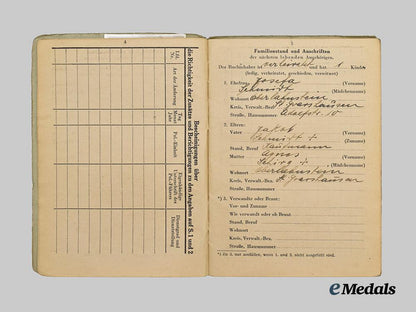 4
Bescheinigungen über
die Richtigkeit der Zusätze und Berichtigungen zu den Angaben auf S. 1 und 2
Lfd. Nr.
Art der Änderung
Tag Monat Jahr
Pol.-Einheit
Dienstgrad und Dienststellung
5
Familienstand und Anschriften
der nächsten lebenden Angehörigen.
Der Buchinhaber ist verheiratet und hat 1 Kinder
(ledig, verheiratet, geschieden, verwitwet)
1. Ehefrau: Josefa (Vorname)
Schmidt (Mädchenname)
Wohnort
Kreis, Verwalt.-Bez.
Straße, Hausnummer 10
2. Eltern:
Vater Jakob (Vorname)
Schmidt +
Stand, Beruf Kaufmann
Mutter (Vorname)
(Mädchenname)
Wohnort
Kreis, Verwalt.-Bez.
Straße, Hausnummer
*) 3. Verwandte oder Braut:
Vor- und Zuname
Wie verwandt oder ob Braut
Stand, Beruf
Wohnort
Kreis, Verwalt.-Bez.
Straße, Hausnummer
*) Zu 3. nur ausfüllen, wenn 1. und 2. nicht ausgefüllt sind.
eMedals